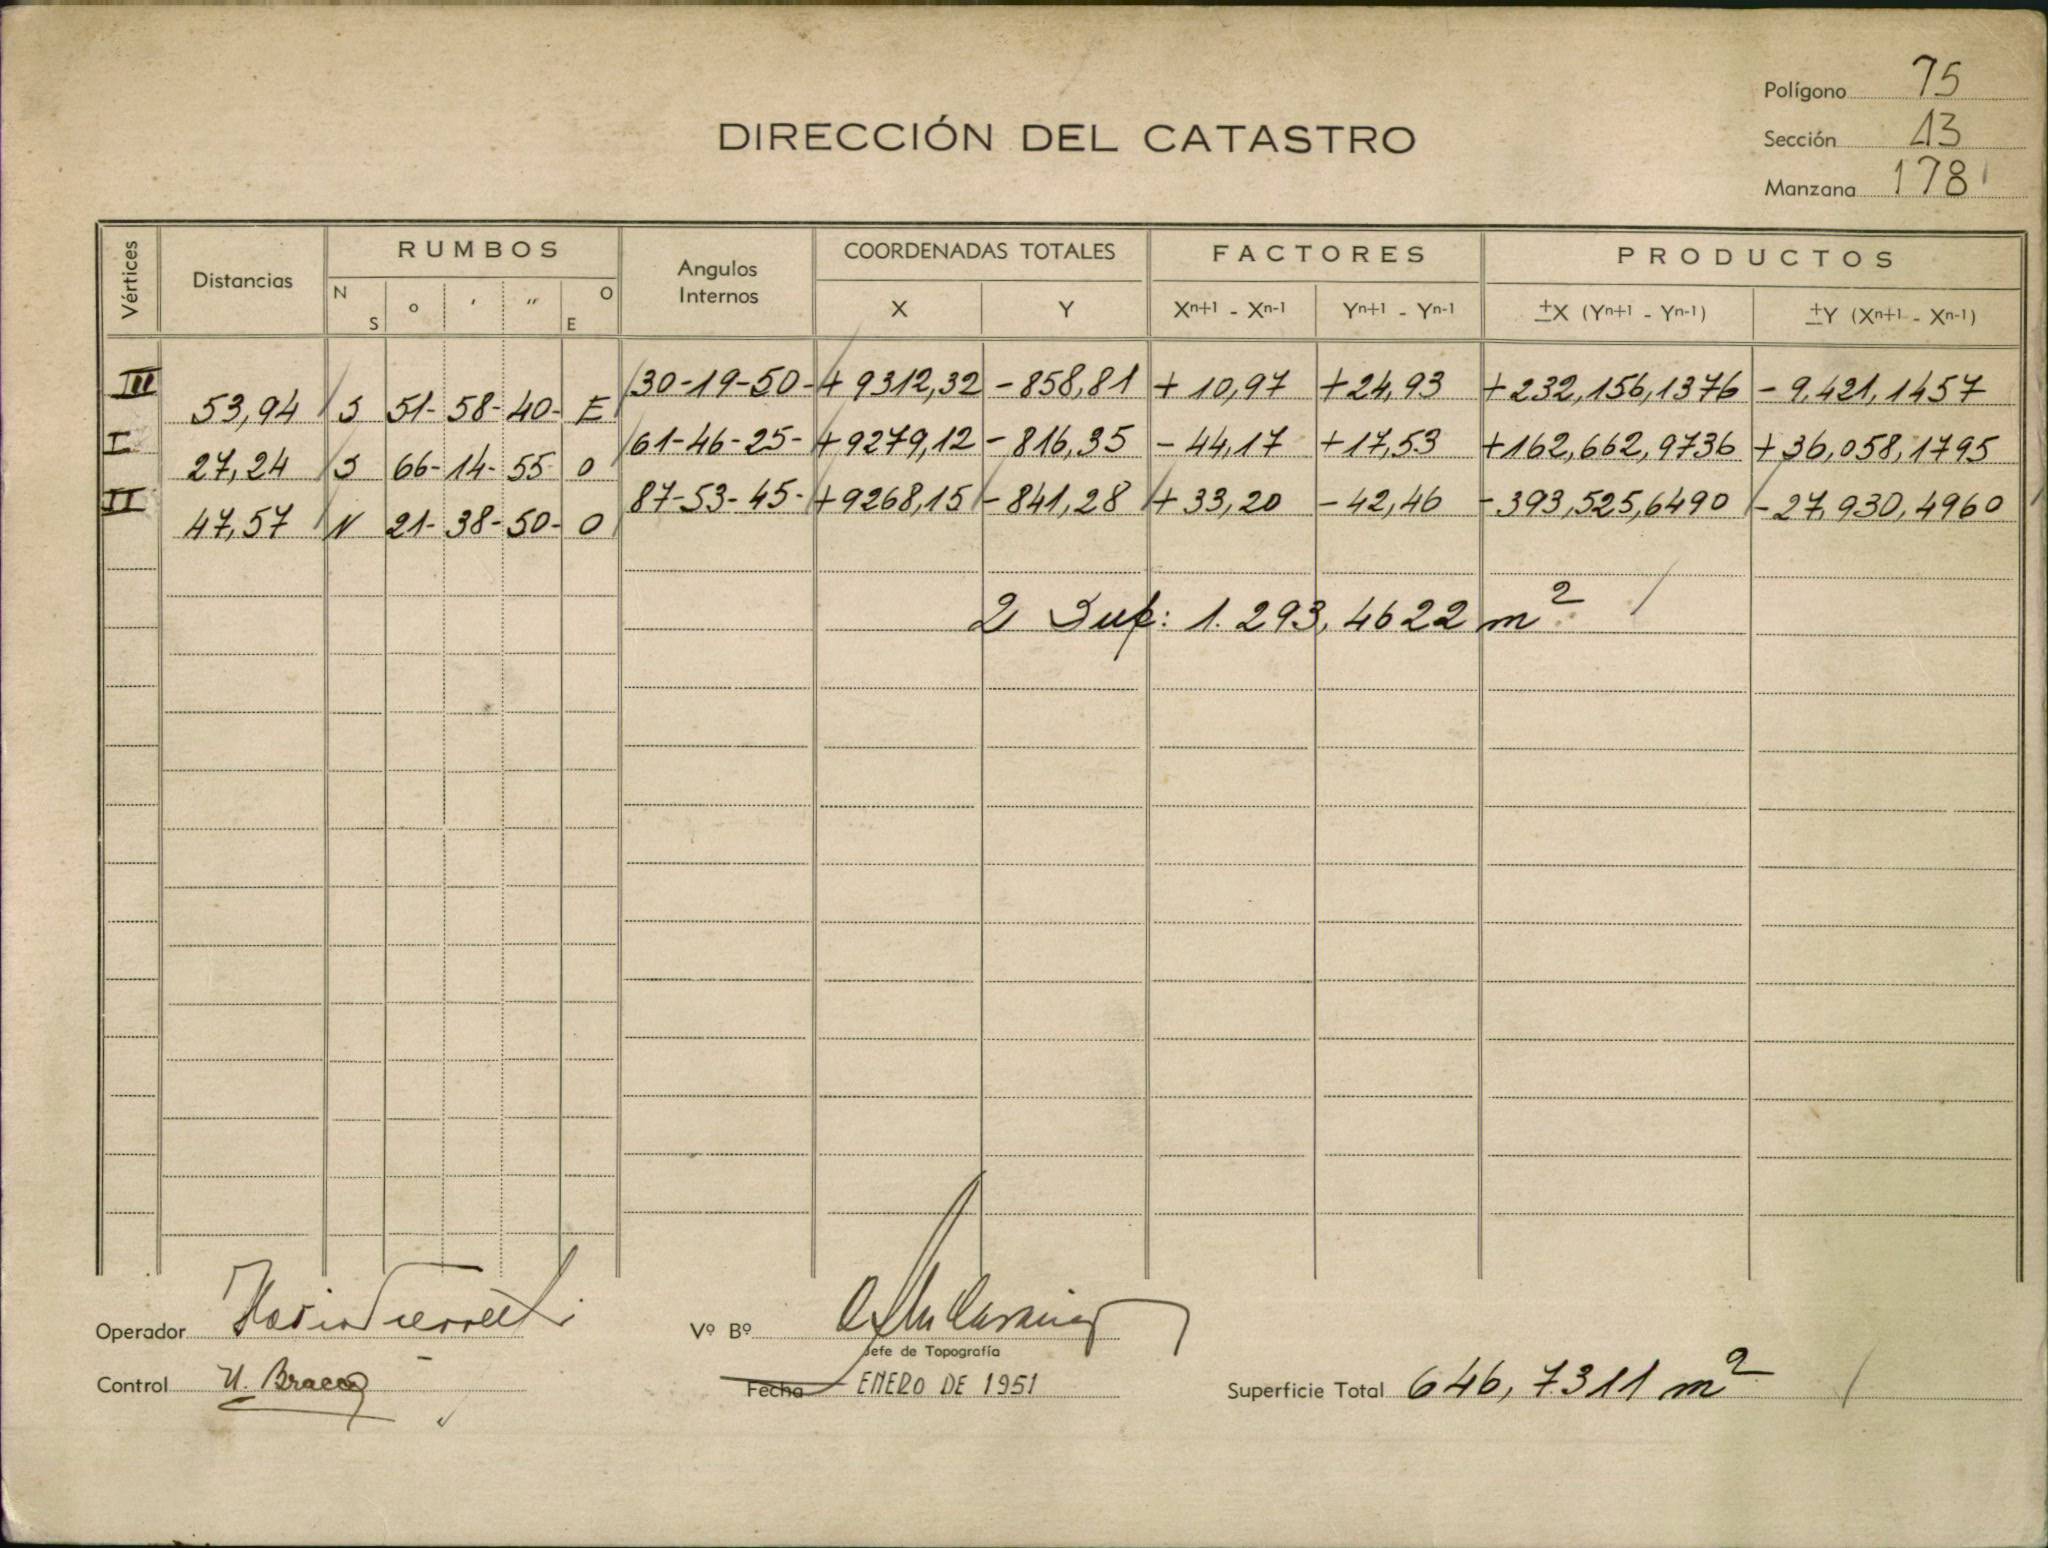 Polígono 75
DIRECCIÓN DEL CATASTRO
Sección 13
Manzana 178
Vértices Distancias RUMBOS Angulos Internos COORDENADAS TOTALES FACTORES PRODUCTOS
N S o ' '' O E X Y Xn+1 - Xn-1 Yn+1 - Yn-1 ±X (Yn+1 - Yn-1) ±Y (Xn+1 - Xn-1)
III 30-19-50- +9312,32 -858,81 +10,97 +24,93 +232,156,1376 -9,421,1457
53,94 S 51- 58- 40- E
I 61-46-25- +9279,12 -816,35 -44,17 +17,53 +162,662,9736 +36,058,1795
27,24 S 66- 14- 55- O
II 87-53-45- +9268,15 -841,28 +33,20 -42,46 -393,525,6490 -27,930,4960
47,57 N 21- 38- 50- O
2 Sup: 1.293,4622 m2
Operador
Vº Bº
Jefe de Topografía
Control
Fecha ENERO DE 1951
Superficie Total 646,7311 m2